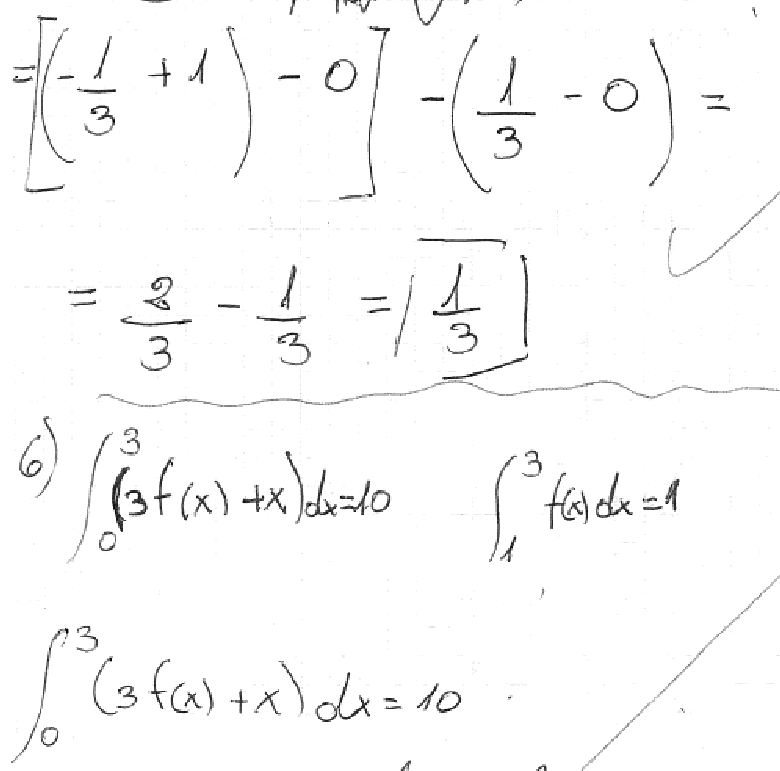 =[(-1/3 + 1) - 0] - (1/3 - 0) =
= 2/3 - 1/3 = 1/3
6) ∫₀³ (3f(x) + x)dx=10 ∫₁³ f(x)dx=1
∫₀³ (3f(x) + x) dx = 10